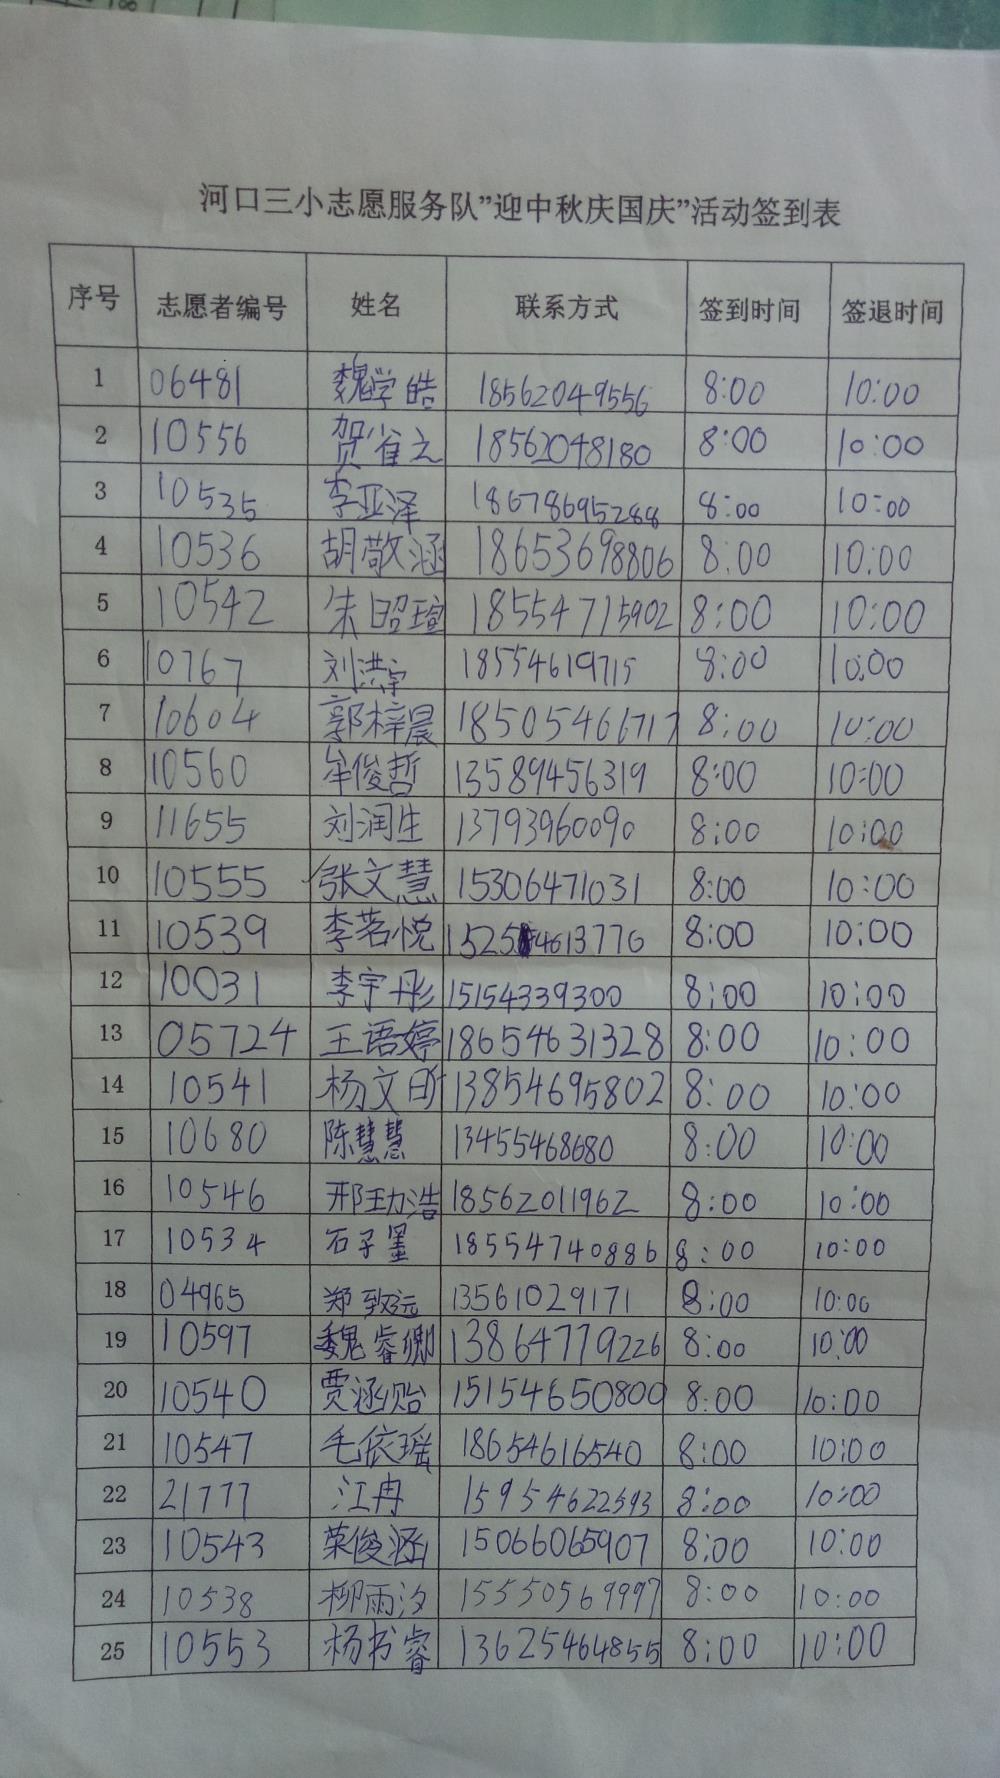 河口三小志愿服务队"迎中秋庆国庆"活动签到表
序号 志愿者编号 姓名 联系方式 签到时间 签退时间
1 06481 魏学皓 18562049556 8:00 10:00
2 10556 贺雀之 18562048180 8:00 10:00
3 10535 李亚泽 18678695288 8:00 10:00
4 10536 胡敬涵 18653698806 8:00 10:00
5 10542 朱昭瑄 18554715902 8:00 10:00
6 10767 刘洪宇 18554619715 8:00 10:00
7 10604 郭梓晨 18505466717 8:00 10:00
8 10560 牟俊哲 13589456319 8:00 10:00
9 11655 刘润生 13793960090 8:00 10:00
10 10555 张文慧 15306471031 8:00 10:00
11 10539 李茗悦 8:00 10:00
12 10031 李宇彤 15154339300 8:00 10:00
13 05724 王语婷 18654631328 8:00 10:00
14 10541 杨文昕 13854695802 8:00 10:00
15 10680 陈慧慧 13455468680 8:00 10:00
16 10546 邢劲浩 18562011962 8:00 10:00
17 10534 石子墨 18554740886 8:00 10:00
18 04965 郑致远 13561029171 8:00 10:00
19 10597 魏睿卿 13864779226 8:00 10:00
20 10540 贾涵贻 15154650800 8:00 10:00
21 10547 毛依瑶 18654616540 8:00 10:00
22 21777 江冉 15954622593 8:00 10:00
23 10543 荣俊涵 15066065907 8:00 10:00
24 10538 柳雨汐 15550569997 8:00 10:00
25 10553 杨书睿 13625464855 8:00 10:00